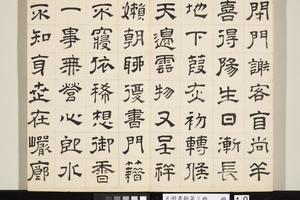 閉門謝客自尚羊
喜得陽生日漸長
地下葭灰初轉候
天邊雲物又呈祥
嬾朝聊復書門籍
不寢依稀想御香
一事無營心即水
不知身世在巖廊